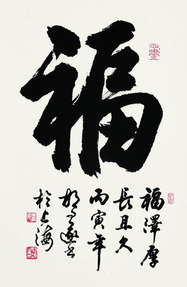 福
福澤厚
長且久
丙寅年
於上海